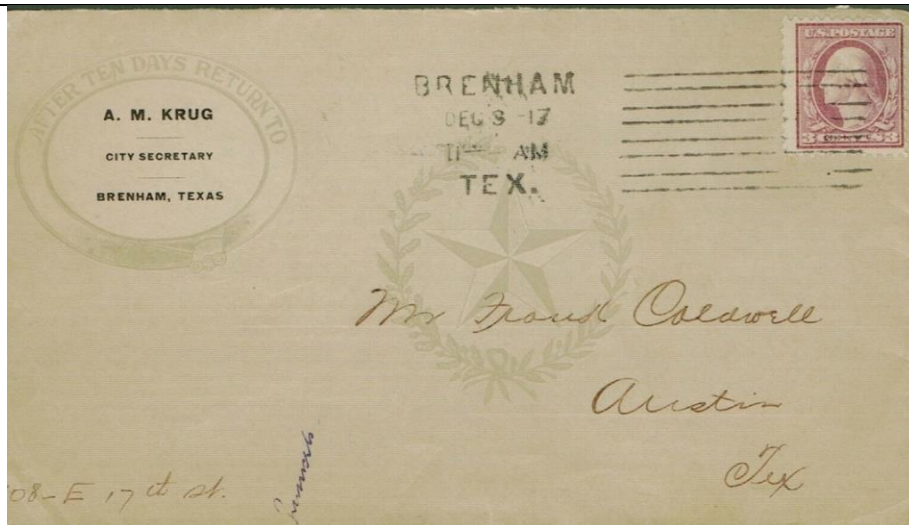 AFTER TEN DAYS RETURN TO
A. M. KRUG
CITY SECRETARY
BRENHAM, TEXAS
BRENHAM
DEC 8 -17
11 AM
TEX.
U.S. POSTAGE
3 CENTS 3
Mr Coldwell
Austin
Tex
08-E 17th St.